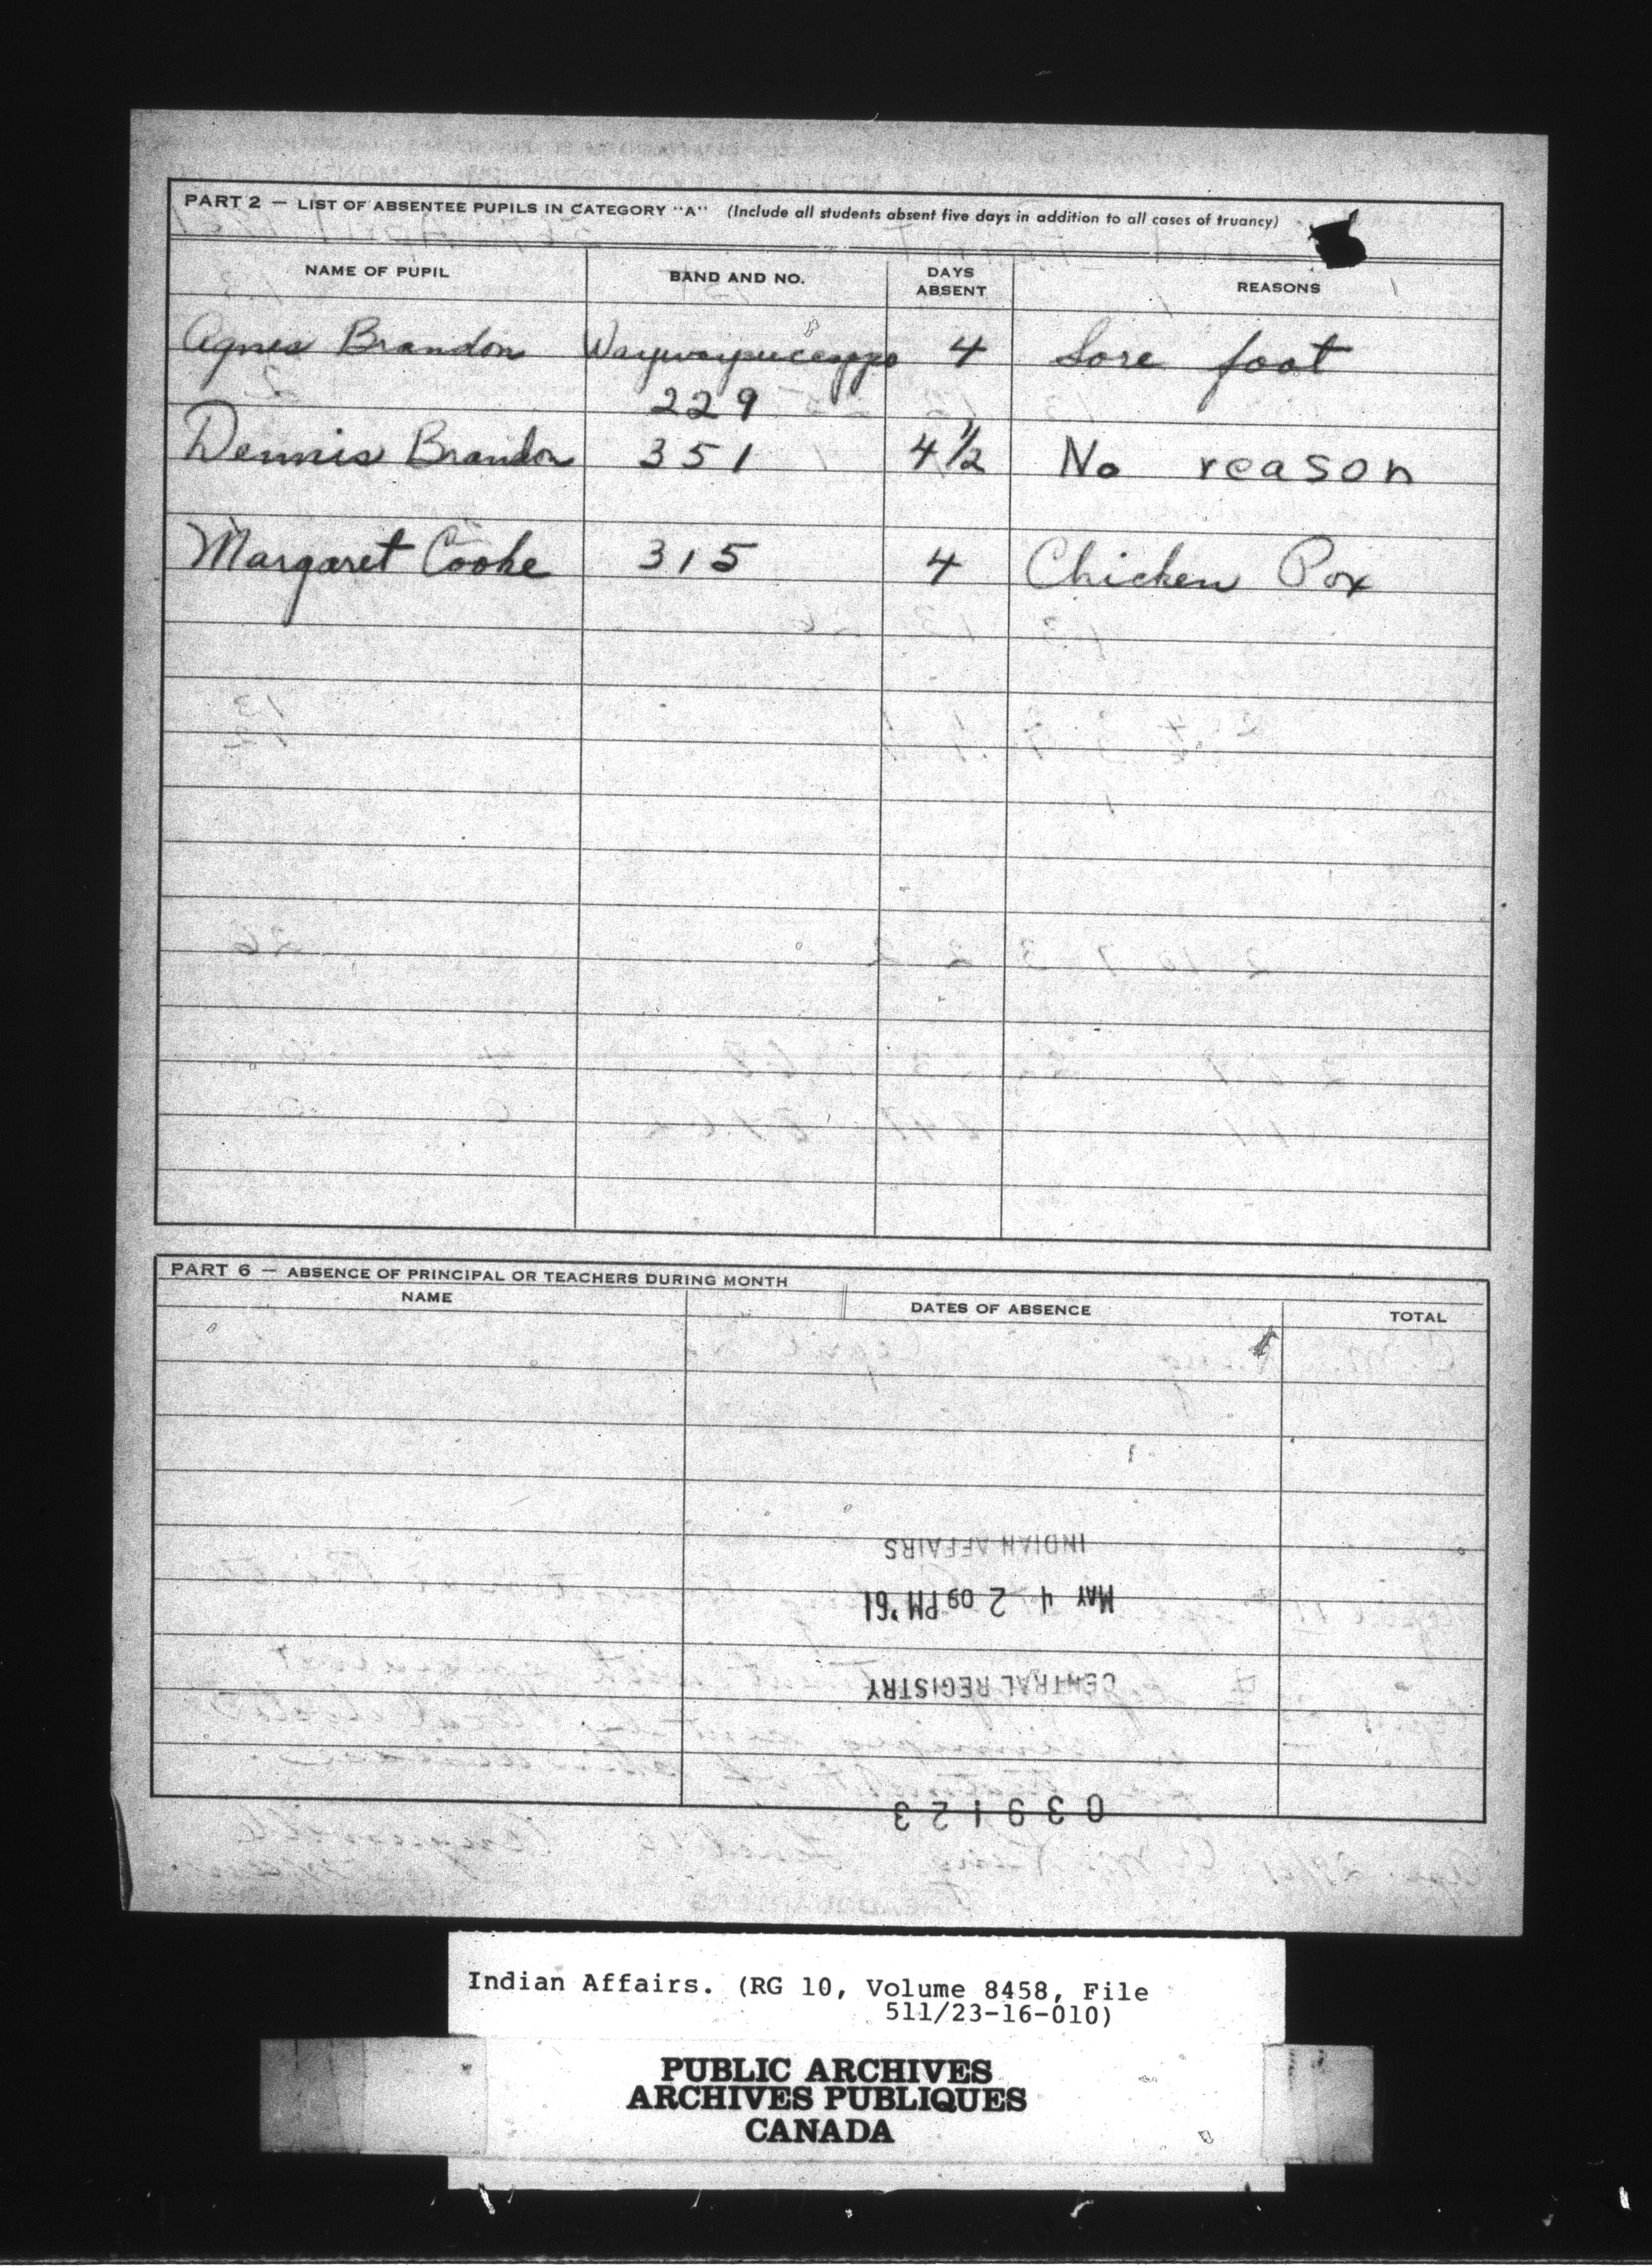 PART 2 — LIST OF ABSENTEE PUPILS IN CATEGORY "A" (Include all students absent five days in addition to all cases of truancy)
NAME OF PUPIL BAND AND NO. DAYS ABSENT REASONS
Agnes Brandon Waywaypuceappo 4 Sore foot
229
Dennis Brandon 351 4 1/2 No reason
Margaret Cooke 315 4 Chicken Pox
PART 6 — ABSENCE OF PRINCIPAL OR TEACHERS DURING MONTH
NAME DATES OF ABSENCE TOTAL
INDIAN AFFAIRS
MAY 4 2 09 PM '61
CENTRAL REGISTRY
039123
Indian Affairs. (RG 10, Volume 8458, File
511/23-16-010)
PUBLIC ARCHIVES
ARCHIVES PUBLIQUES
CANADA